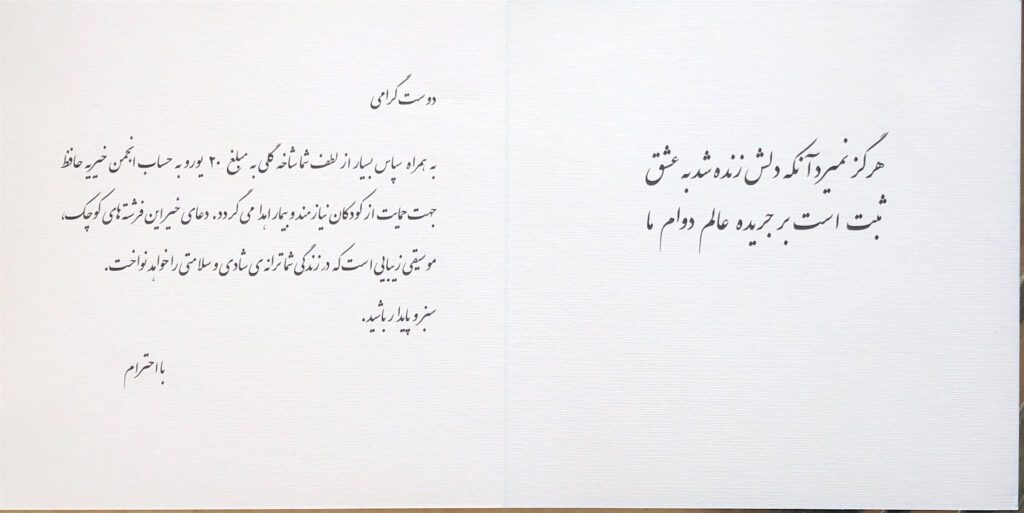 هرگز نمیرد آنکه دلش زنده شد به عشق
ثبت است بر جریده عالم دوام ما
دوست گرامی
به همراه سپاس بسیار از لطف شما شاخه گلی به مبلغ ۲۰ یورو به حساب انجمن خیریه حافظ
جهت حمایت از کودکان نیازمند و بیمار اهدا می گردد. دعای خیر این فرشته های کوچک،
موسیقی زیبایی است که در زندگی شما ترانه ی شادی و سلامتی را خواهد نواخت.
سبز و پایدار باشید.
با احترام